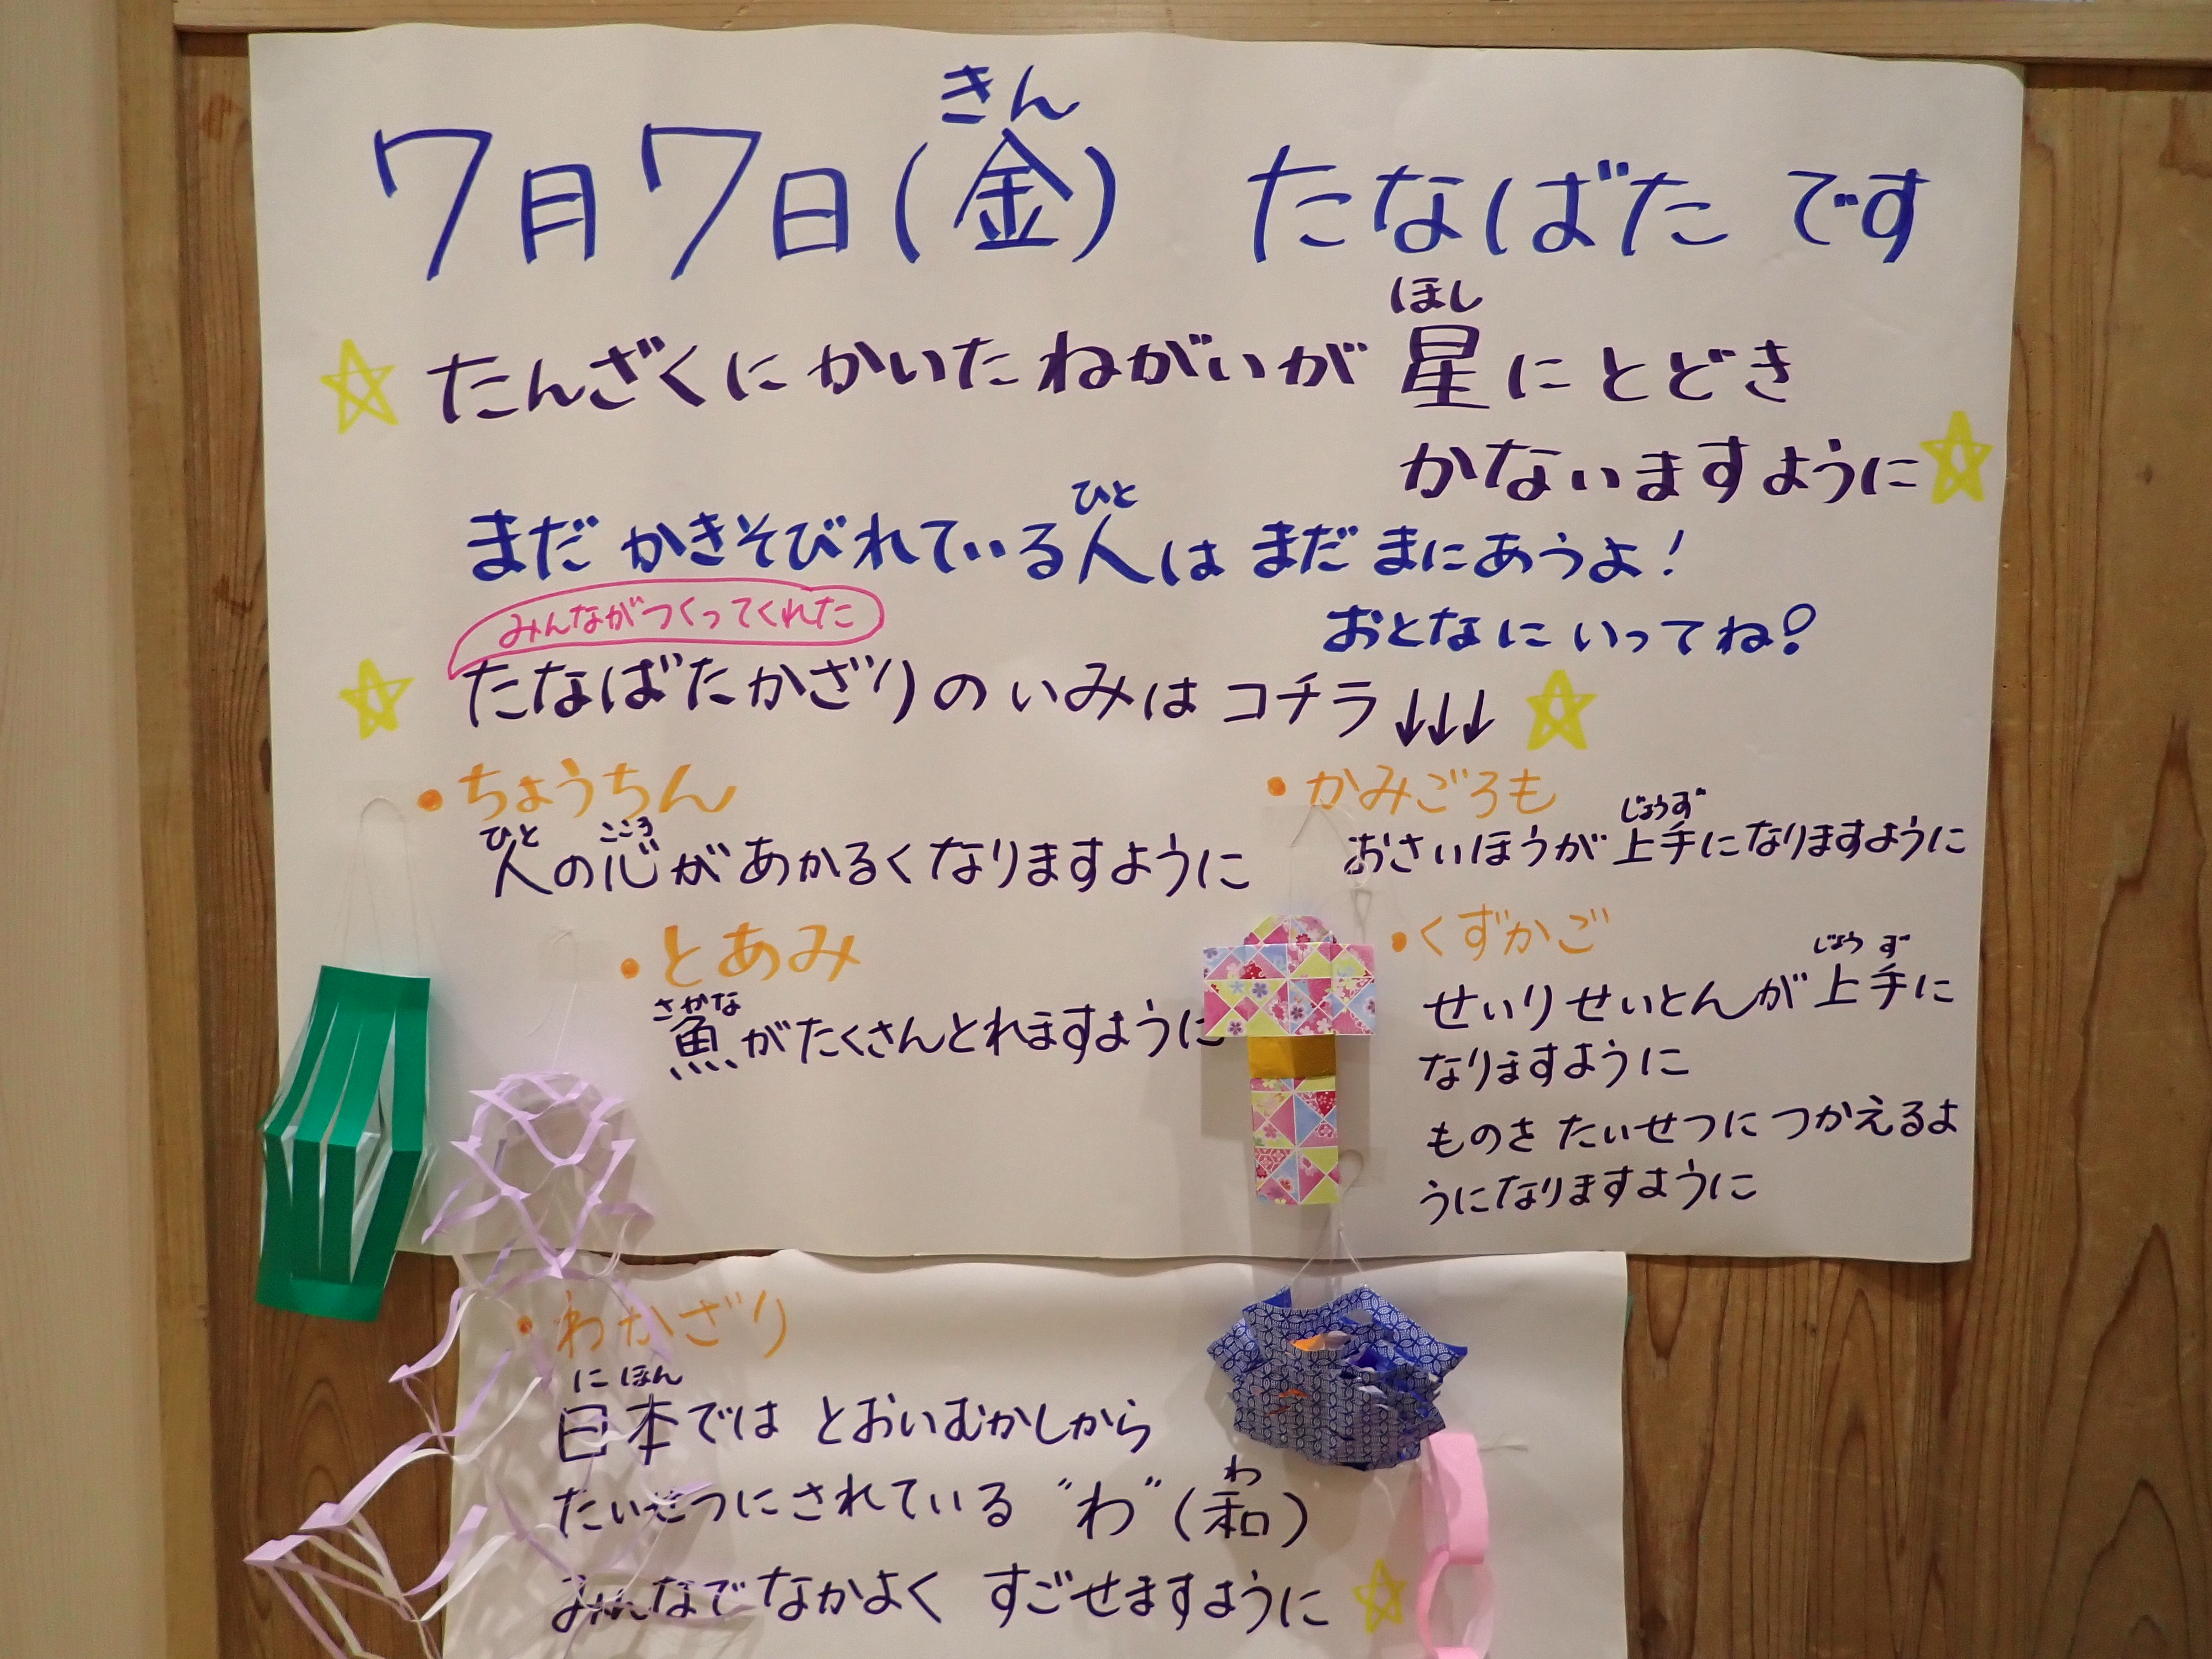 7月7日(金) たなばたです
きん
たんざくにかいたねがいが星にとどき
ほし
かないますように
まだかきそびれている人はまだまにあうよ!
ひと
おとなにいってね!
みんながつくってくれた
たなばたかざりのいみはコチラ↓↓↓
・ちょうちん
人の心があかるくなりますように
ひと こころ
・とあみ
魚がたくさんとれますように
さかな
・かみごろも
おさいほうが上手になりますように
じょうず
・くずかご
せいりせいとんが上手に
じょうず
なりますように
ものをたいせつにつかえるよ
うになりますように
・わかざり
日本ではとおいむかしから
にほん
たいせつにされている"わ"(和)
わ
みんなでなかよく すごせますように